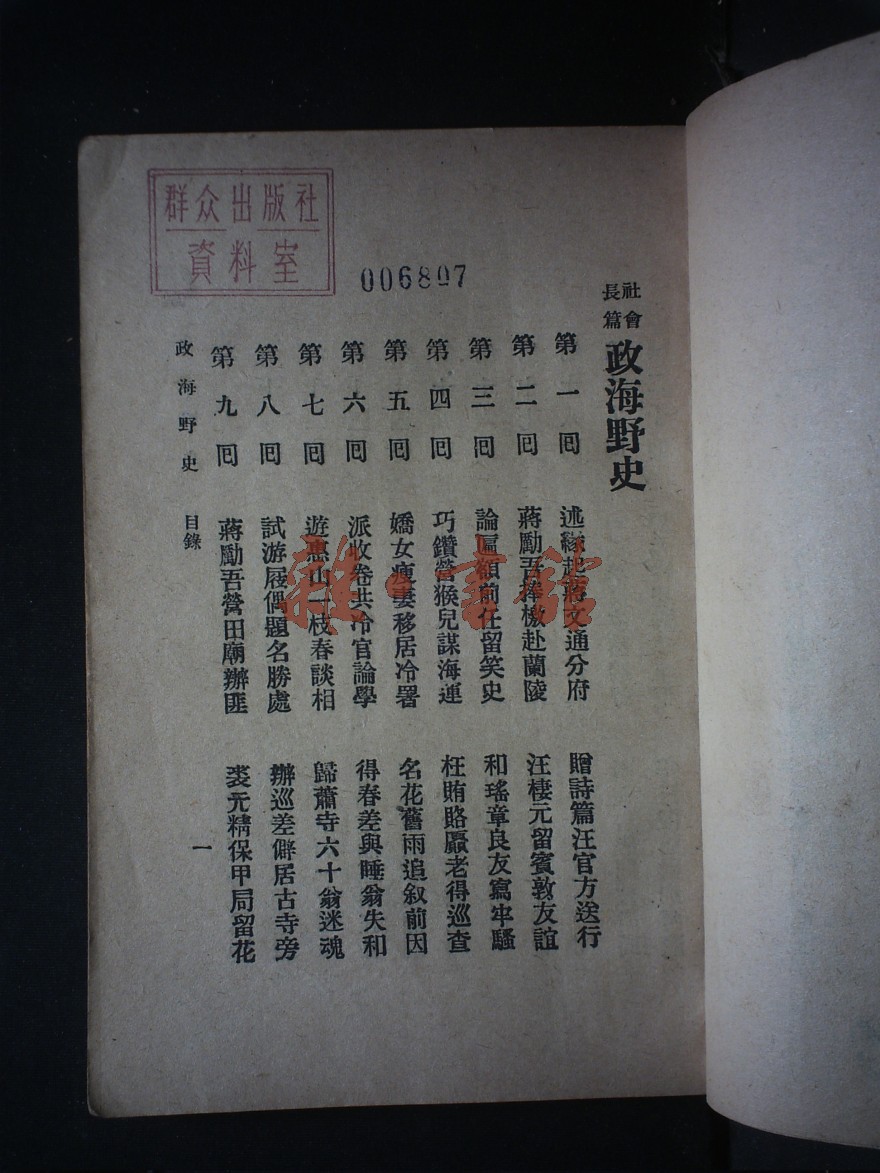 群众出版社
資料室
006807
社會長篇 政海野史
第一回 述緣起蔣文通分府 贈詩篇汪官方送行
第二回 蔣勵吾捧檄赴蘭陵 汪棲元留賓敦友誼
第三回 論匾額前任留笑史 和瑤章良友寫牢騷
第四回 巧鑽營猴兒謀海運 枉賄賂贗老得巡查
第五回 嬌女瘦妻移居冷署 名花舊雨追叙前因
第六回 派收卷共冷官論學 得春差與睡翁失和
第七回 遊惠山一枝春談相 歸蕭寺六十翁迷魂
第八回 試游屐偶題名勝處 辦巡差僻居古寺旁
第九回 蔣勵吾營田廟辦匪 裘元精保甲局留花
政海野史 目錄 一
雜書館